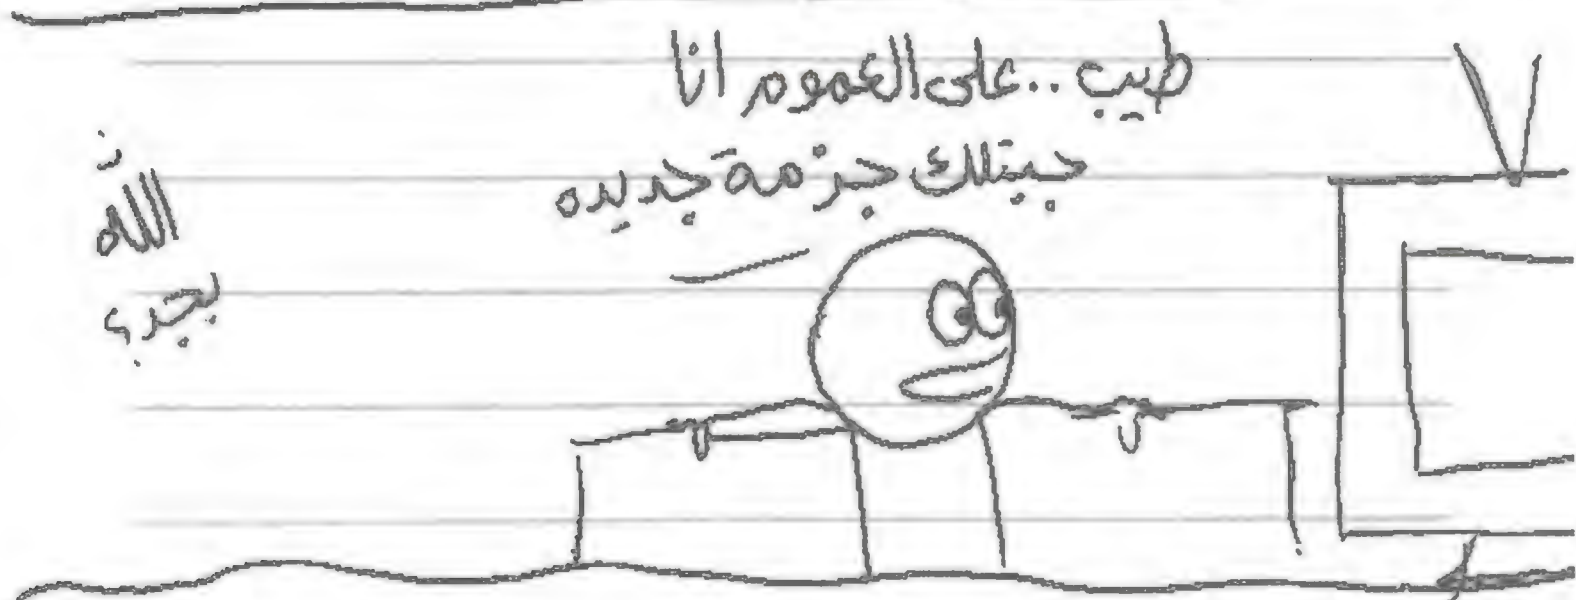 طيب.. على العموم انا
جبتلك جزمة جديده
الله